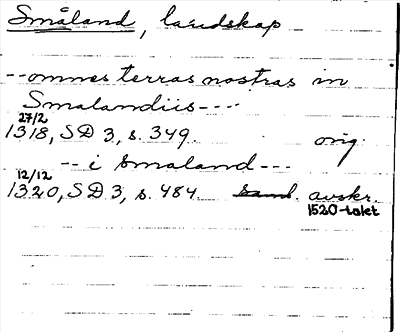 Småland, landskap
--omnes terras nostras in
Smalandiis----
27/2
1318, SD 3, s. 349. orig.
--i smaland---
12/12
1320, SD 3, s. 484. avskr.
1520-talet